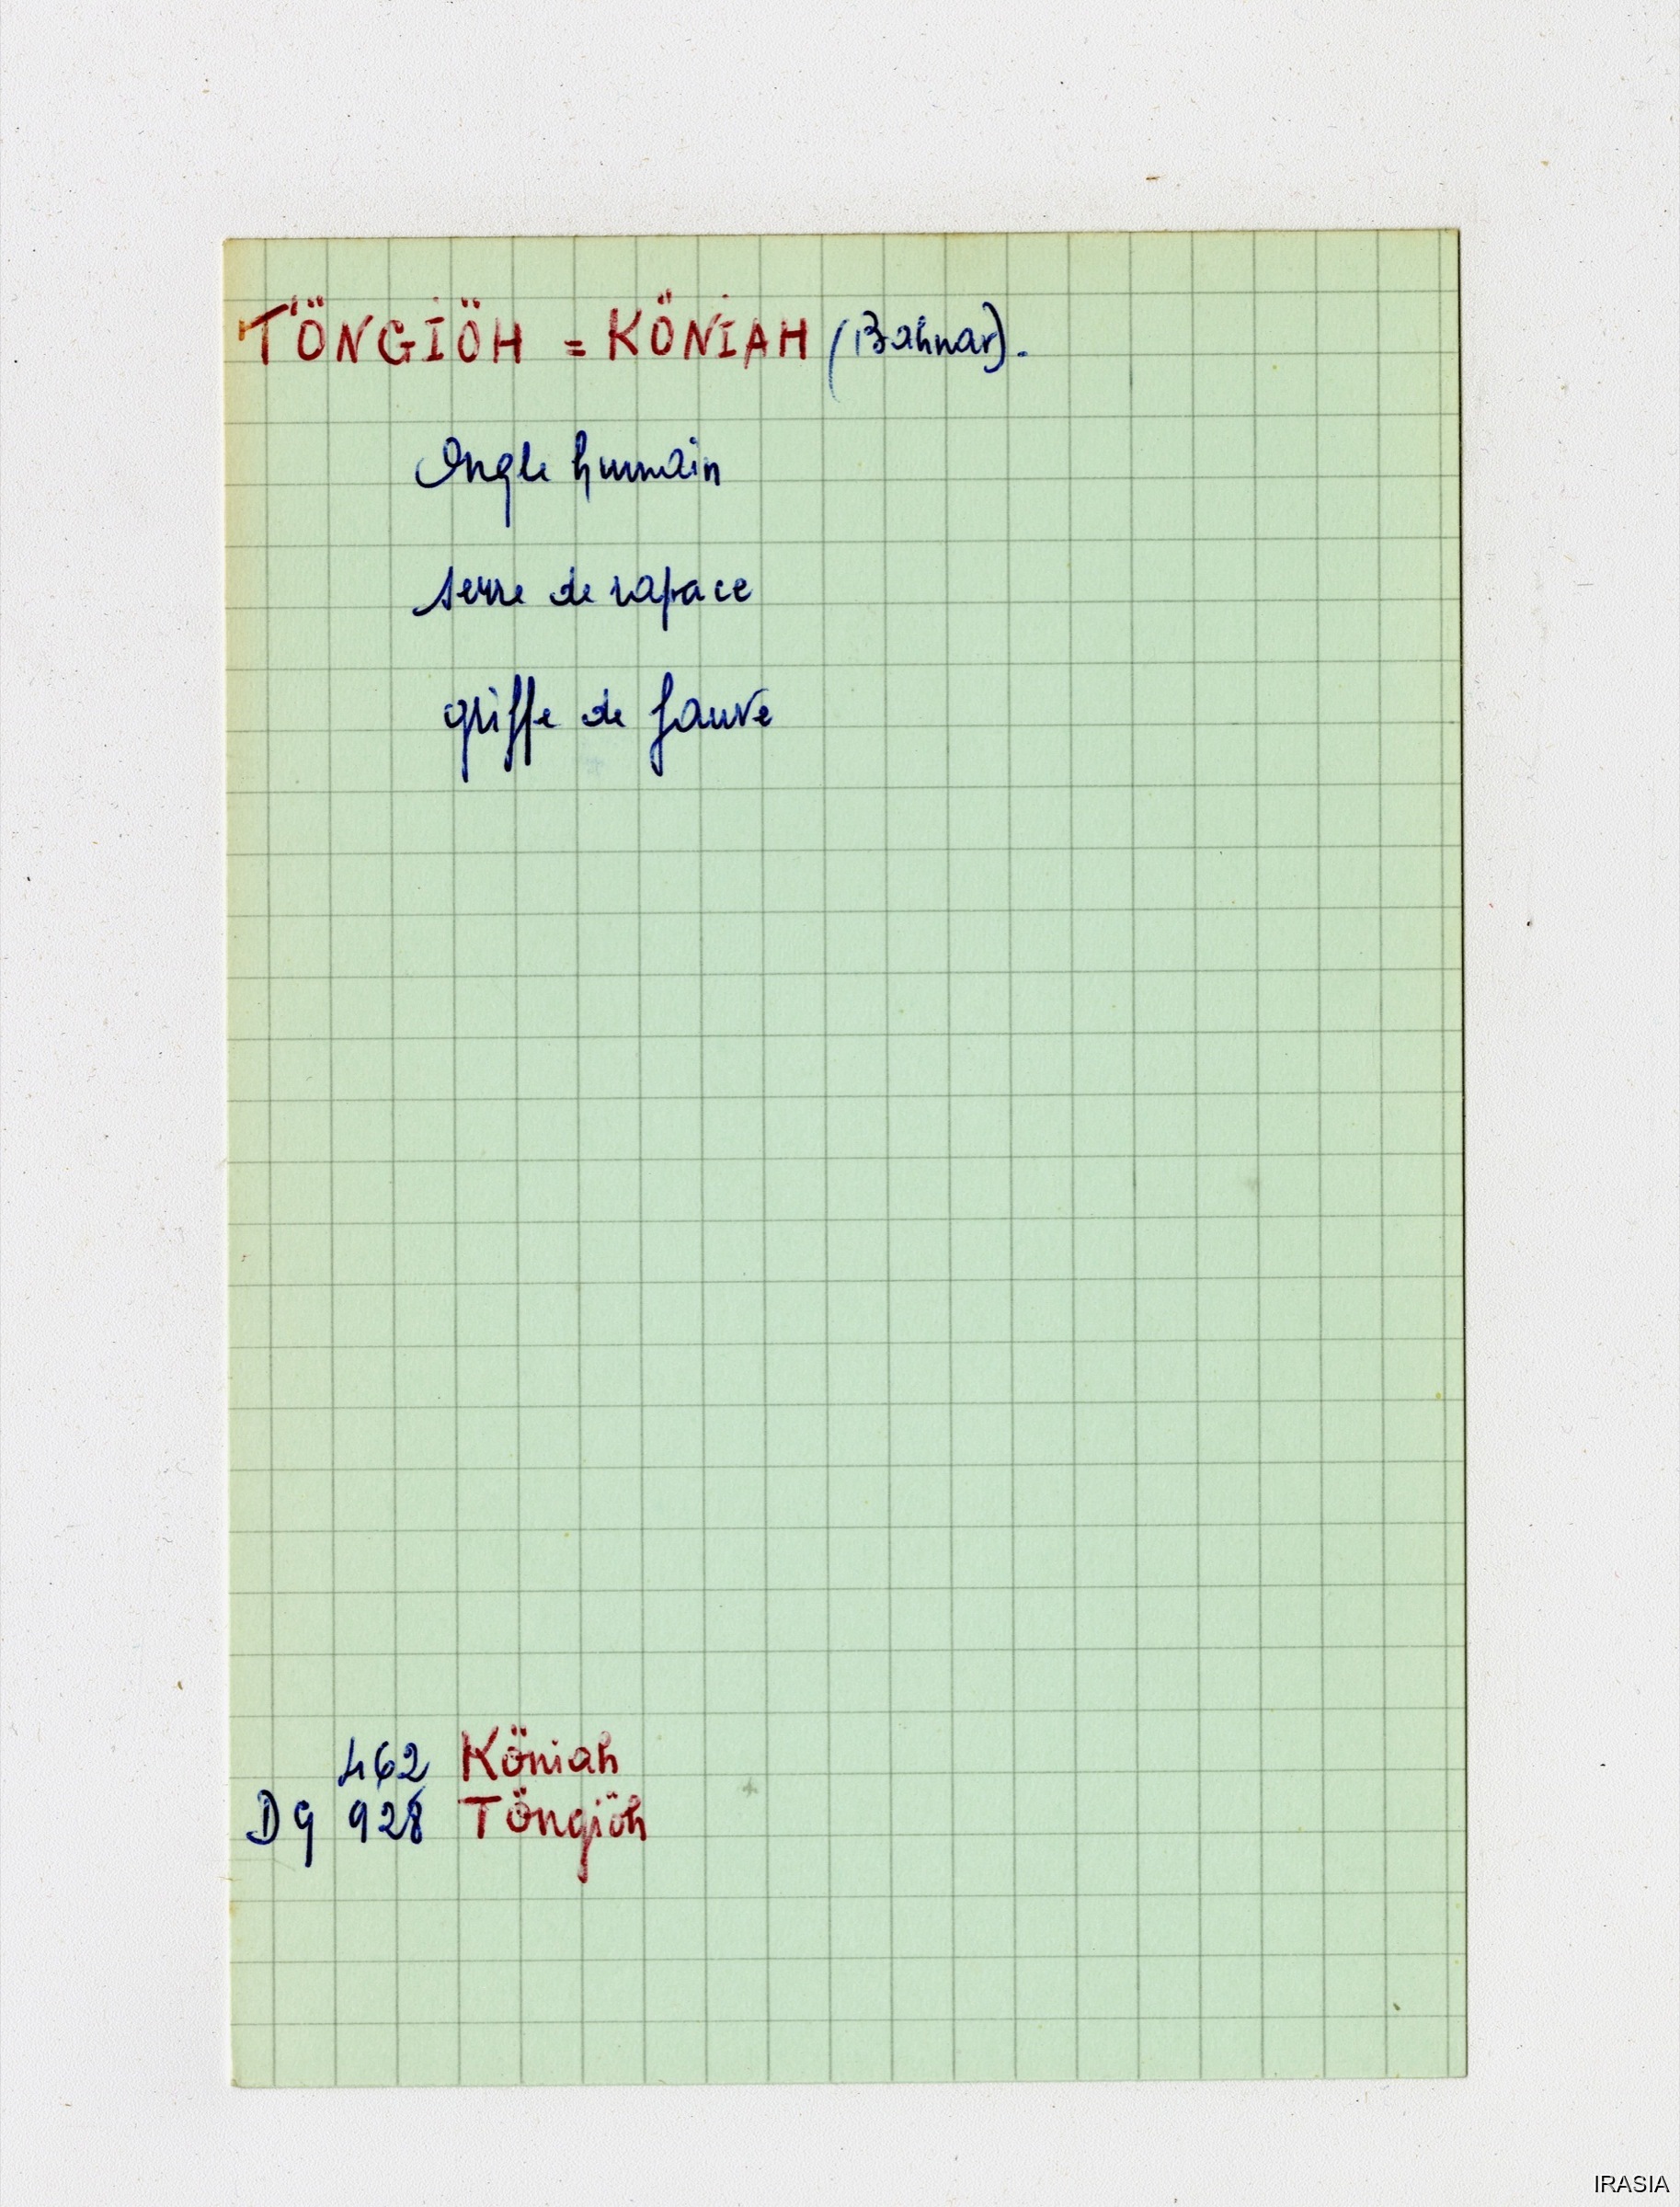 TÖNGIÖH = KÖNIAH (Bahnar).
Ongle humain
serre de rapace
griffe de fauve
462 Köniah
Dg 928 Töngiöh
IRASIA